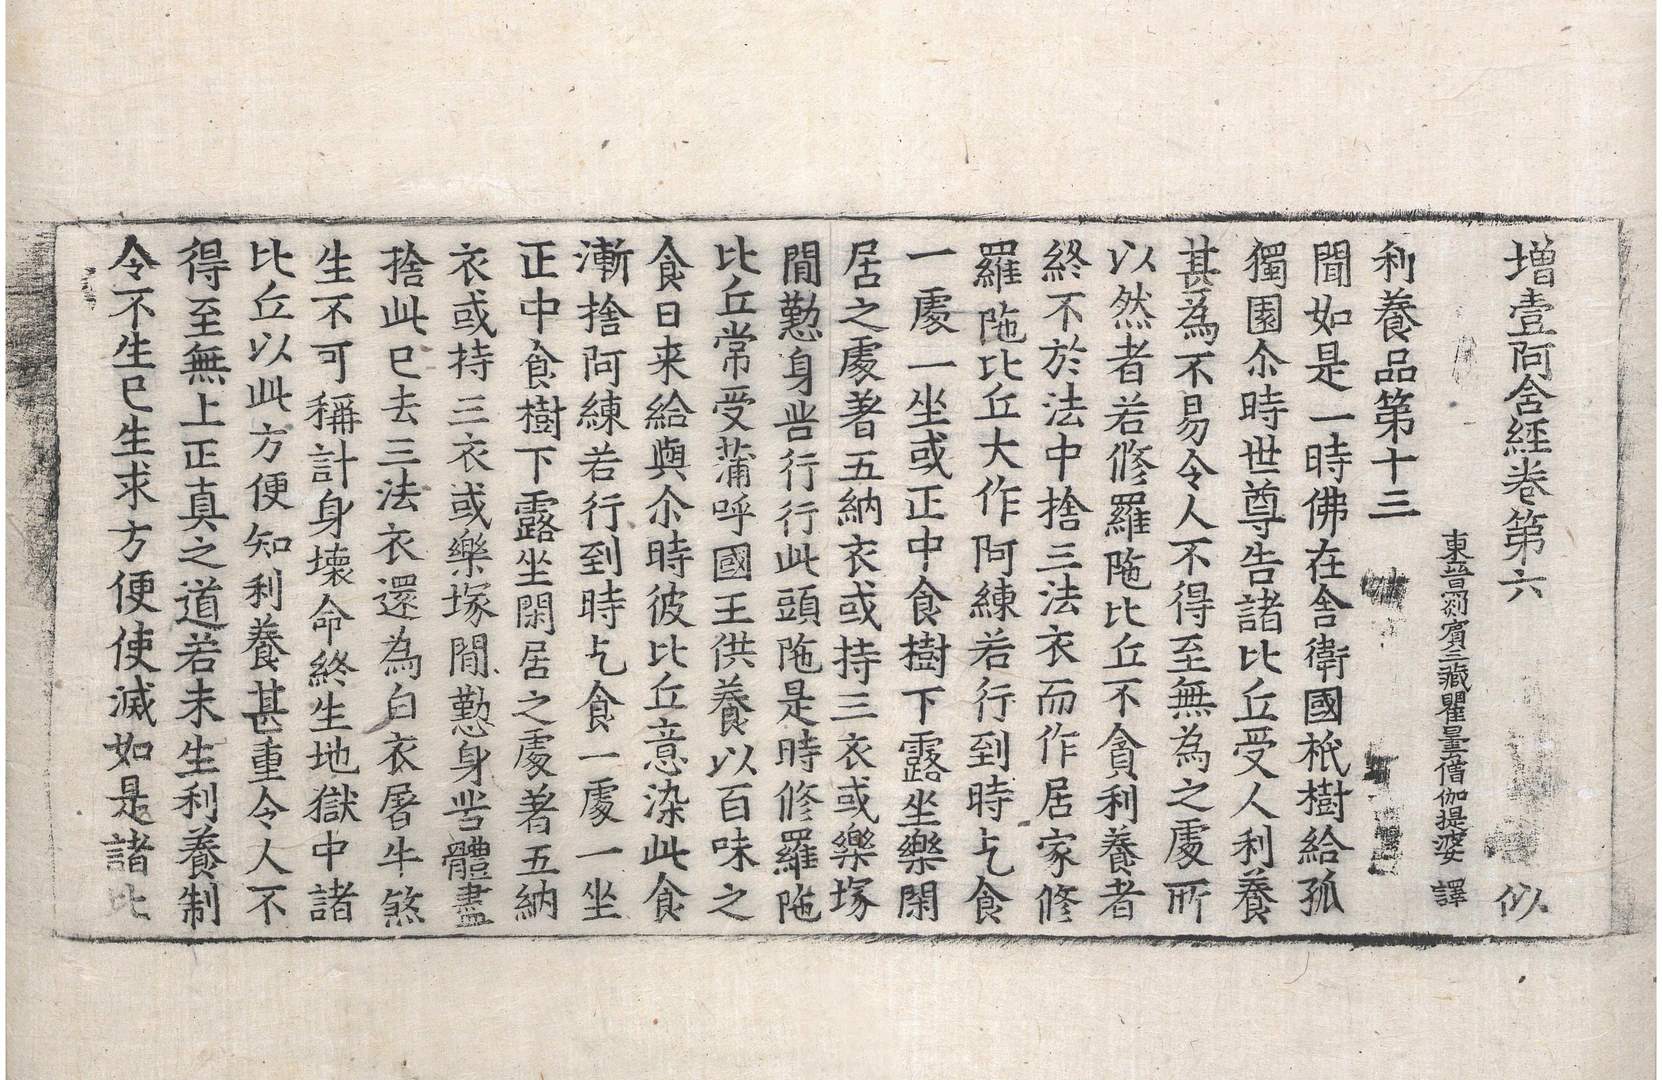 增壹阿含經卷第六　似
東晉罽賓三藏瞿曇僧伽提婆　譯
利養品第十三
聞如是一時佛在舍衛國祇樹給孤
獨園尒時世尊告諸比丘受人利養
甚為不易令人不得至無為之處所
以然者若修羅陁比丘不貪利養者
終不於法中捨三法衣而作居家修
羅陁比丘大作阿練若行到時乞食
一處一坐或正中食樹下露坐樂閑
居之處著五納衣或持三衣或樂塚
間懃身苦行行此頭陁是時修羅陁
比丘常受蒲呼國王供養以百味之
食日来給與尒時彼比丘意染此食
漸捨阿練若行到時乞食一處一坐
正中食樹下露坐閑居之處著五納
衣或持三衣或樂塚間懃身苦體盡
捨此已去三法衣還為白衣屠牛煞
生不可稱計身壞命終生地獄中諸
比丘以此方便知利養甚重令人不
得至無上正真之道若未生利養制
令不生已生求方便使滅如是諸比